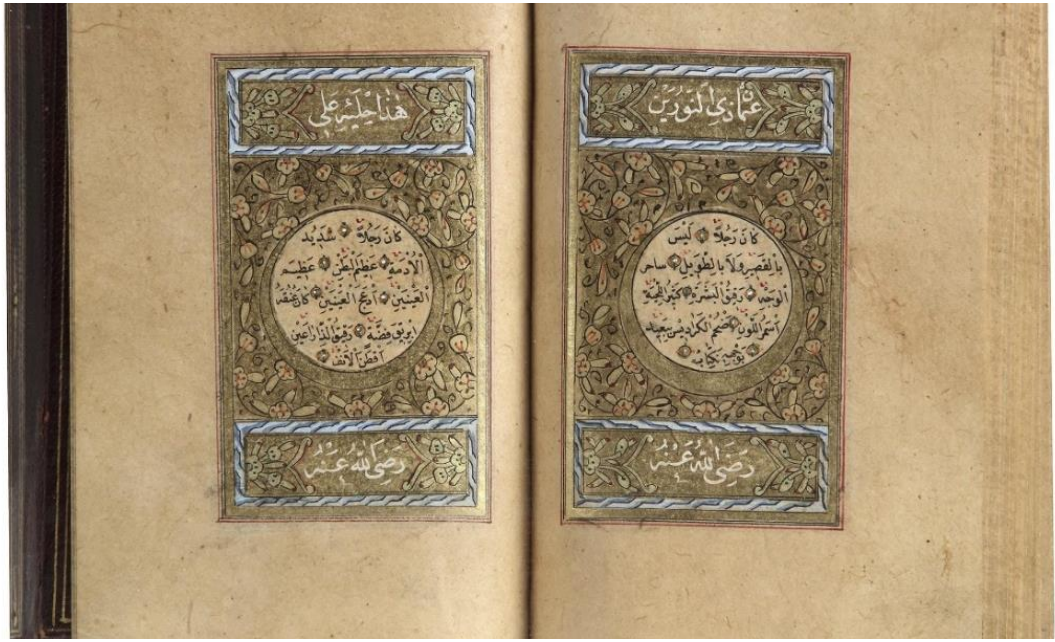 عثمان ذي النورين
كَانَ رَجُلاً لَيْسَ
بِالْقَصِيرِ وَلَا بِالطَّوِيلِ
الوجه رقيق البشرة كثير اللحية
اسمر اللون ضخم الكراديس بعيد
رَضِيَ اللهُ عَنْهُ
هٰذَا حِلْيَةِ عَلِي
كَانَ رَجُلاً شَدِيدُ
الأدمة عظيم البطن عظيم
العينين ادعج العينين كان عنقه
ابريق فضة رقيق الذراعين
افطس الانف
رَضِيَ اللهُ عَنْهُ